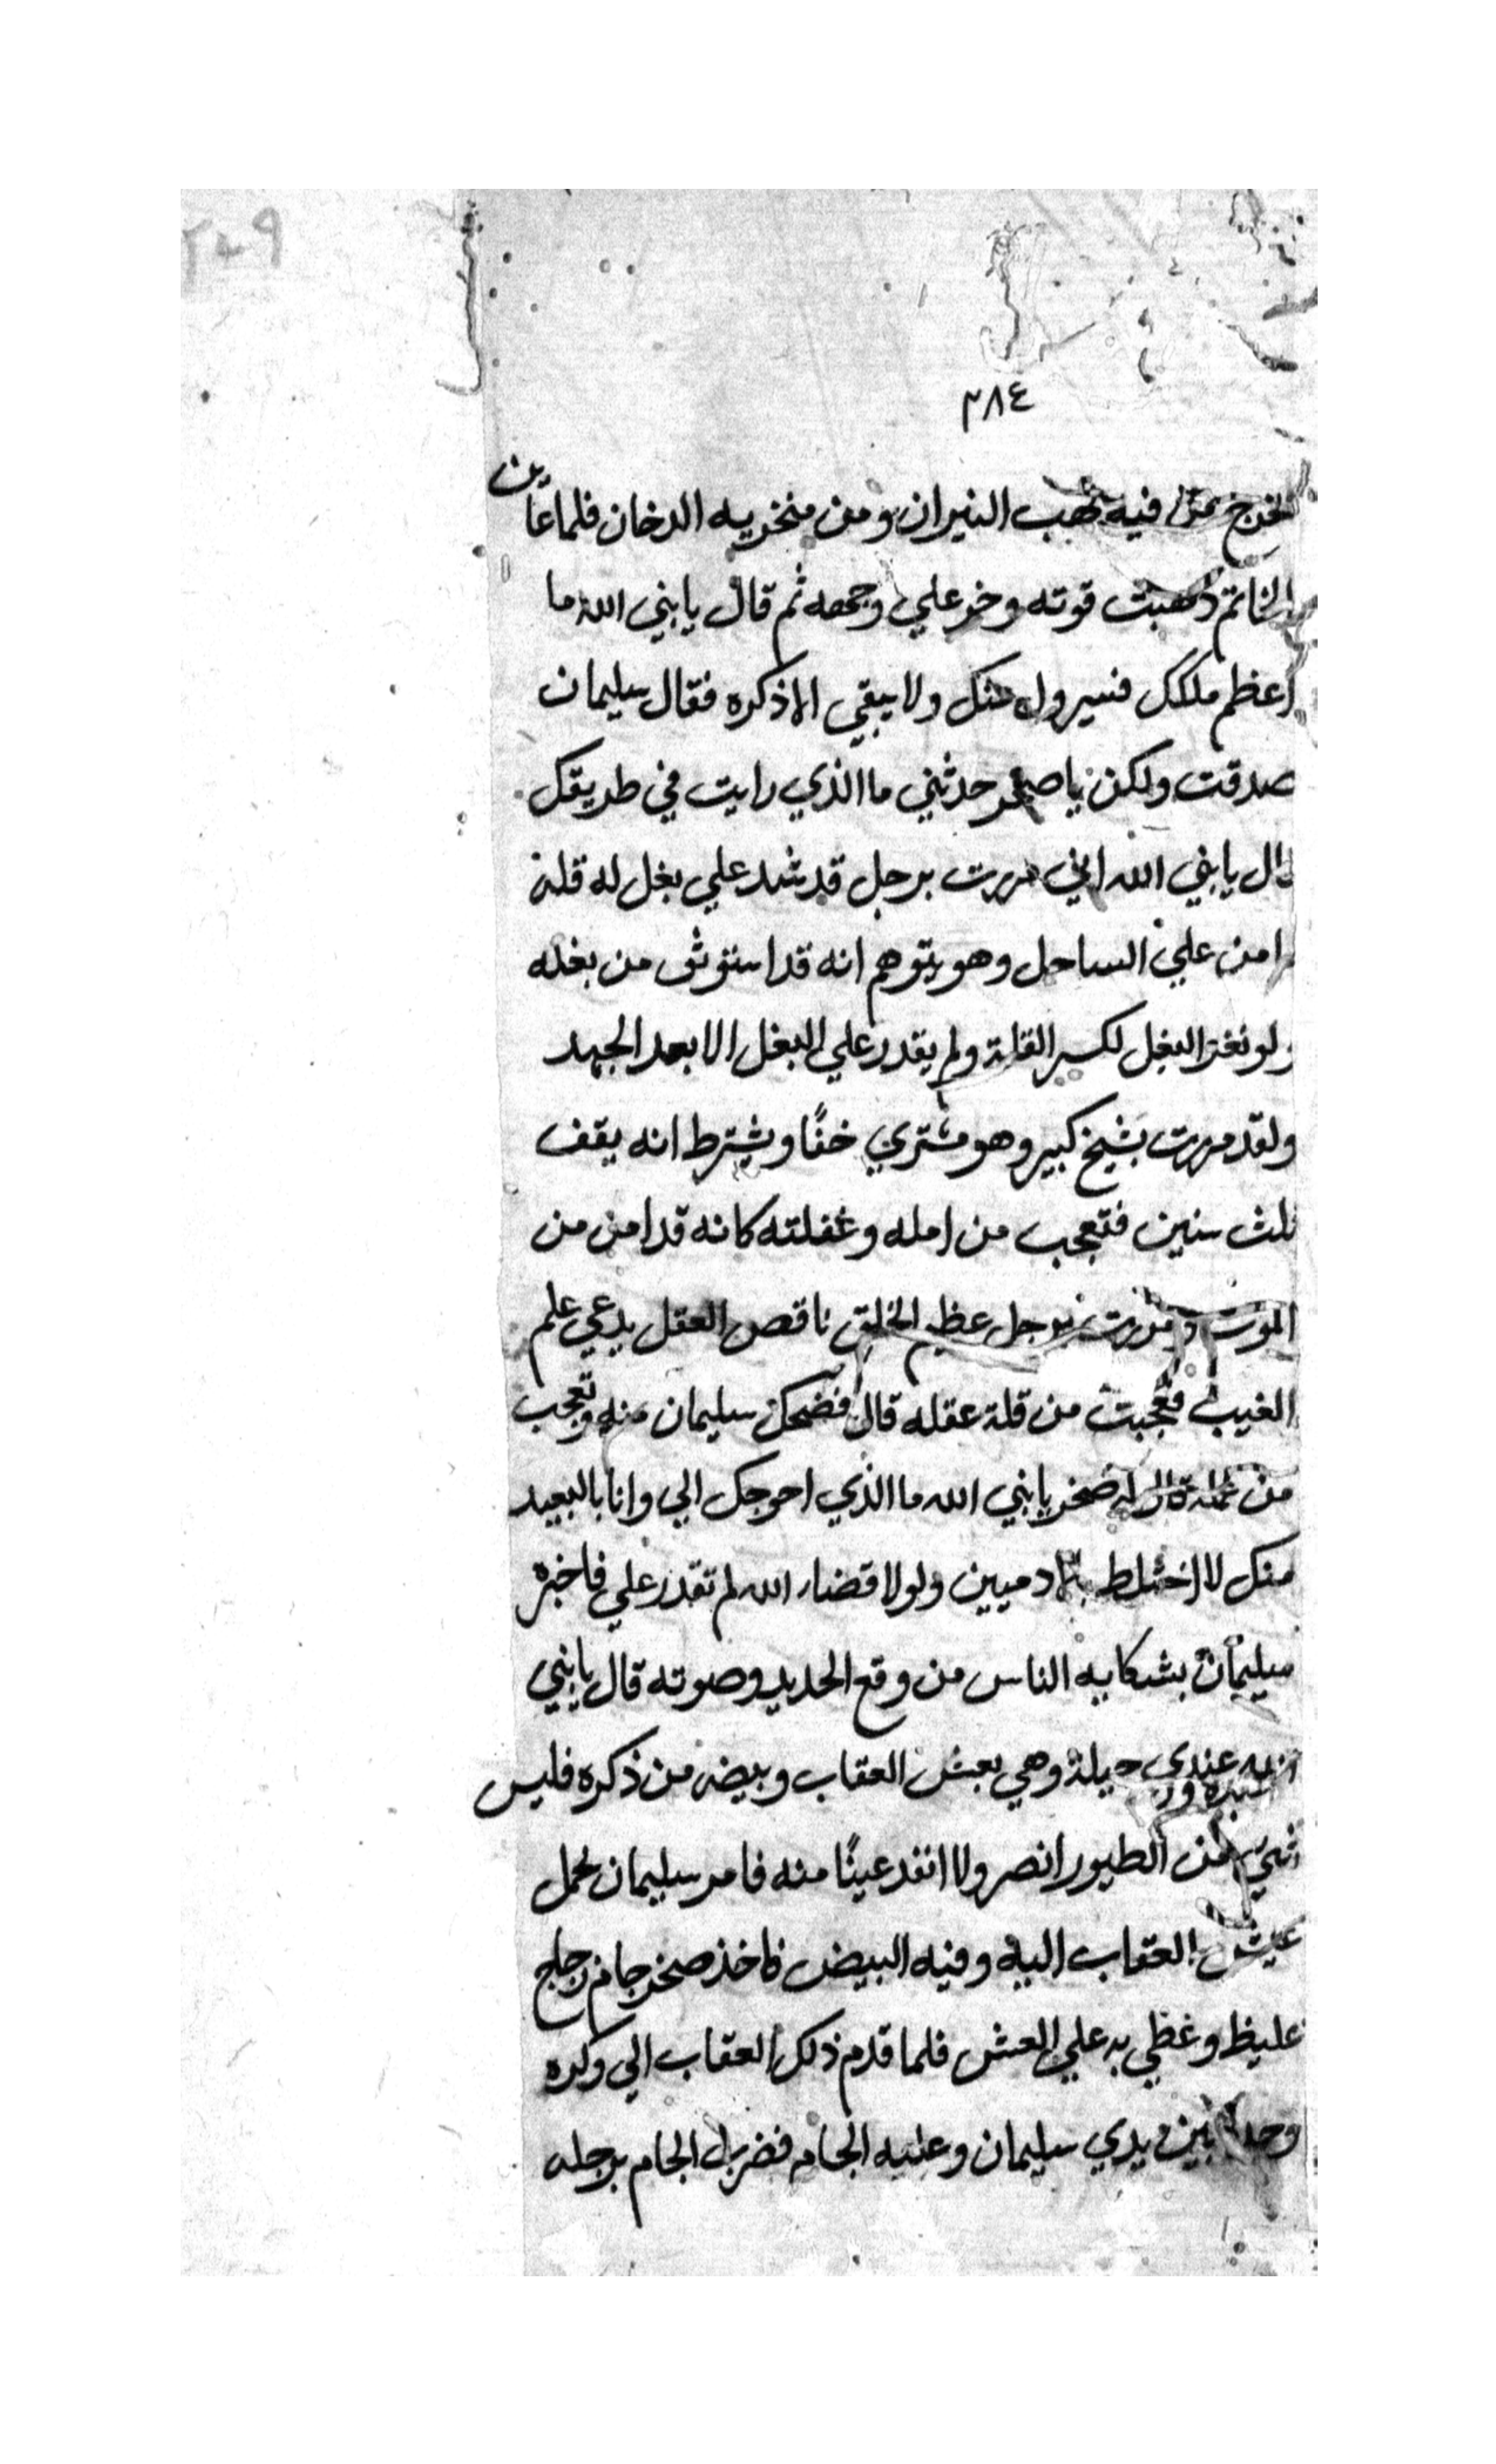 ٢٤٩
٢٨٤
تخرج من فيه لهب النيران ومن منخريه الدخان فلما عاين
الخاتم ذهبت قوته وخر علي وجهه ثم قال يا بني الله ما
اعظم ملكك فسيزول عنك ولا يبقي الا ذكره فقال سليمان
صدقت ولكن يا صخر حدثني ما الذي رايت في طريقك
قال يا بني الله اني مررت برجل قد شد علي بغل له قلة
وامن علي الساحل وهو يتوهم انه قد استوثق من بغله
ولو نغز البغل لكسر القلة ولم يقدر علي البغل الا بعد الجهد
ولقد مررت بشيخ كبير وهو مشتري خفًا ويشترط انه يقف
ثلث سنين فتعجب من امله وغفلته كانه قد امن من
الموت ومررت برجل عظيم الخلق ناقص العقل يدعي علم
الغيب فعجبت من قلة عقله قال فضحك سليمان منه وتعجب
من قال له صخر يا بني الله ما الذي احوجك الي وانا بالبعيد
منك لا اختلط بالادميين ولولا قضاء الله لم تقدر علي فاخبره
سليمان بشكايه الناس من وقع الحديد وصوته قال يا بني
الله عندي حيلة وهي بعش العقاب وبيضه من ذكره فليس
شي من الطيور انصر ولا انفد عينًا منه فامر سليمان بحمل
عيش العقاب اليه وفيه البيض فاخذ صخر جام زجاج
غليظ وغطي به علي العش فلما قدم ذلك العقاب الي وكره
وجده بين يدي سليمان وعليه الجام فضرب الجام برجله